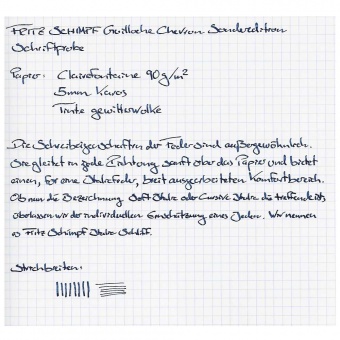 FRITZ SCHIMPF Guilloche Chevron Sonderedition
Schriftprobe
Papier: Clairefontaine 90g/m²
5mm Karos
Tinte gewitterwolke
Die Schreibeigenschaften der Feder sind außergewöhnlich.
Sie gleitet in jede Richtung sanft über das Papier und bietet
einen, für eine Italicfeder, breit ausgearbeiteten Komfortbereich.
Ob nun die Bezeichnung Soft Italic oder Cursive Italic die treffendste ist,
überlassen wir der individuellen Einschätzung eines Jeden. Wir nennen
es Fritz Schimpf Italic Schliff.
Strichbreiten: